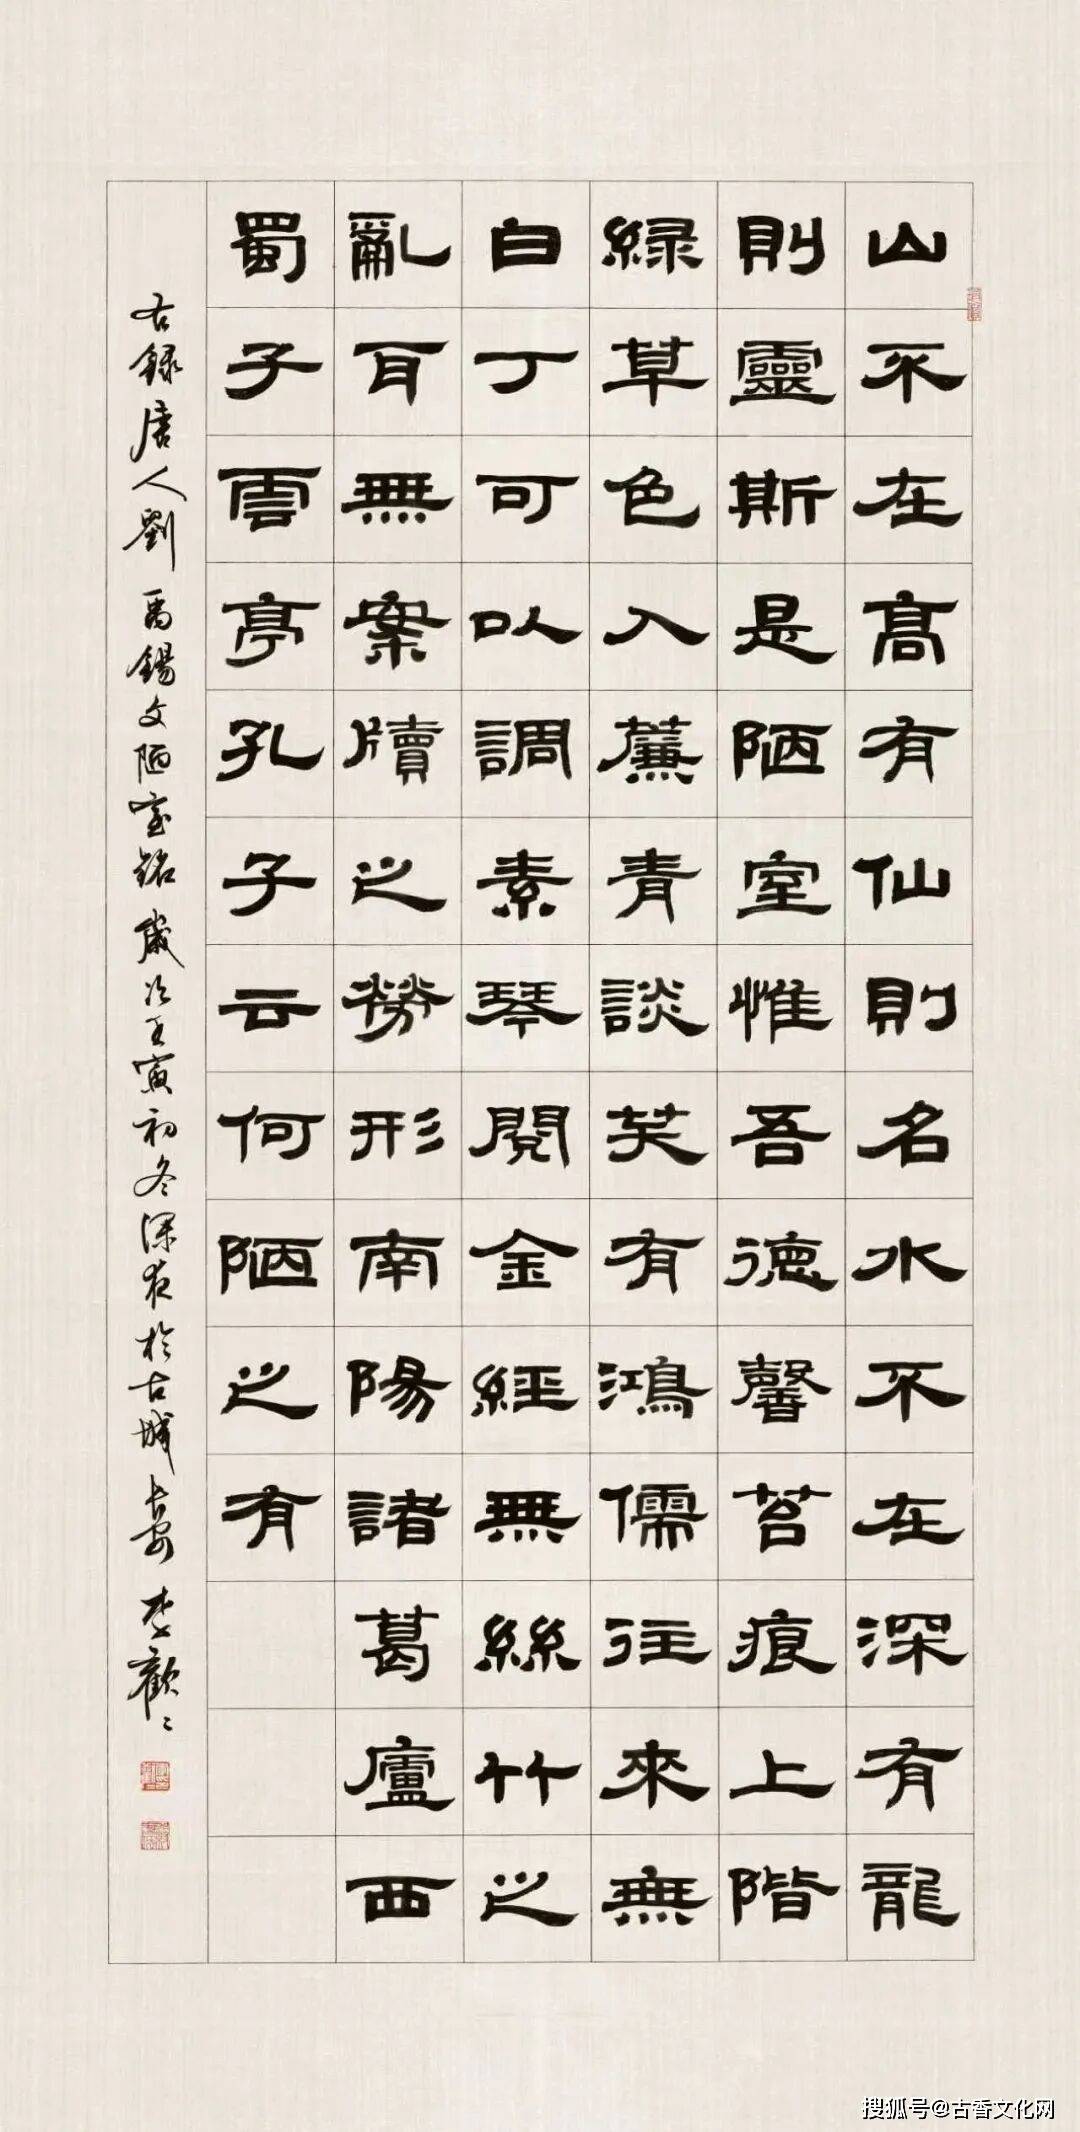 山不在髙有仙則名水不在深有龍
則靈斯是陋室惟吾德馨苔痕上階
緑草色入簾青談笑有鴻儒往來無
白丁可以調素琴閱金經無絲竹之
亂耳無案牘之勞形南陽諸葛廬西
蜀子雲亭孔子云何陋之有
右錄唐人劉禹錫文陋室銘歲次壬寅初冬深夜於古城長安李歡歡
搜狐号@古香文化网